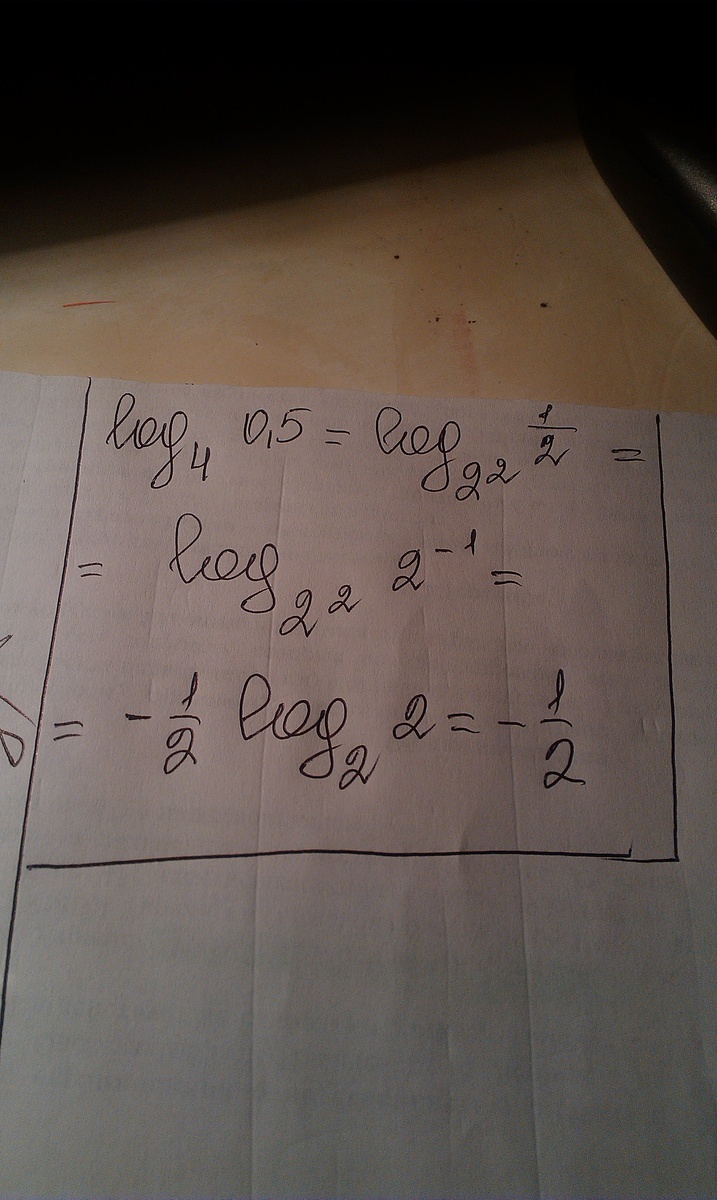 log₄ 0,5 = log_{2²} 1/2 =
= log_{2²} 2⁻¹ =
= - 1/2 log₂ 2 = - 1/2